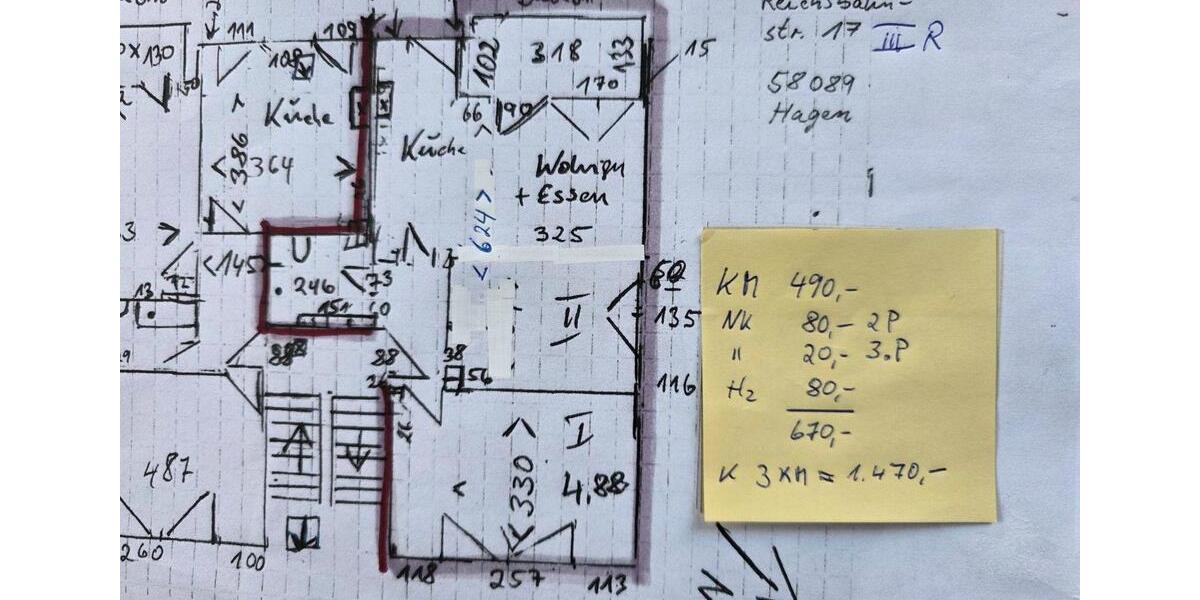 Reichsbahn-
str. 17 III R
58089
Hagen
111
109
108
102
318
133
15
x130
50
170
66
90
Küche
Küche
386
<364
Wohnen
+ Essen
<624>
325
3
<145
73
246
151
60
13
60
135
II
88
88
38
56
26
116
I
<330
4,88
487
260
100
118
257
113
N
KM 490,-
NK 80,- 2P
" 20,- 3.P
Hz 80,-
670,-
K 3 KM = 1.470,-